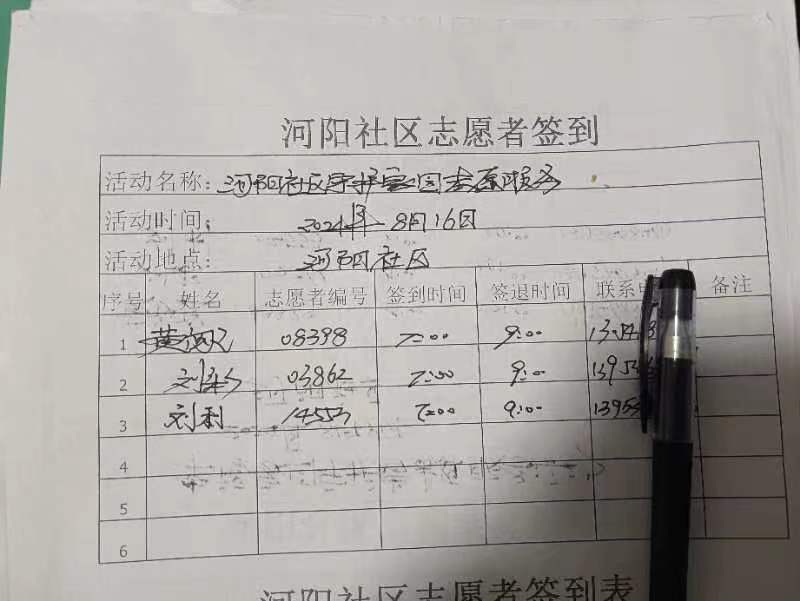 河阳社区志愿者签到
活动名称：河阳社区守护家园志愿服务
活动时间： 2024年8月16日
活动地点： 河阳社区
序号 姓名 志愿者编号 签到时间 签退时间 联系 备注
1 黄 08398 7:00 9:00
2 刘 03862 7:00 9:00
3 刘利 14553 7:00 9:00
4
5
6
河阳社区志愿者签到表